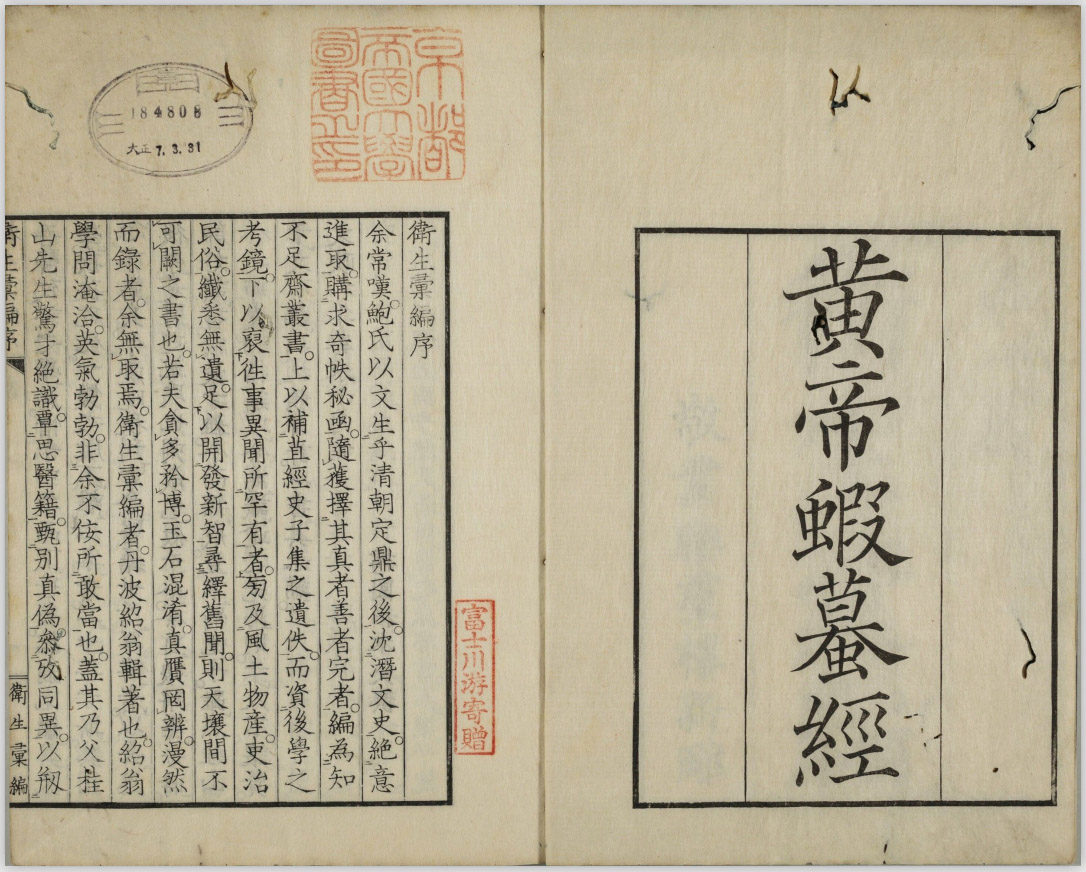 黄帝蝦蟇經
京都
帝國大學
圖書之印
184808
大正7.3.31
富士川游寄贈
衛生彙編序
余常嘆鮑氏以文生乎清朝定鼎之後沈潛文史絶意
進取購求奇帙秘函隨獲擇其真者善者完者編為知
不足齋叢書上以補苴經史子集之遺佚而資後學之
考鏡下以裒徃事異聞所罕有者菊及風土物産吏治
民俗纖悉無遺足以開發新智尋繹舊聞則天壤間不
可闕之書也若夫貪多矜博玉石混淆真贋罔辨漫然
而錄者余無取焉衛生彙編者丹波紹翁輯著也紹翁
學問淹洽英氣勃勃非余不佞所敢當也蓋其乃父桂
山先生驚才絶識覃思醫籍甄別真偽叅攷同異以剏
衛生彙編序
衛生彙編